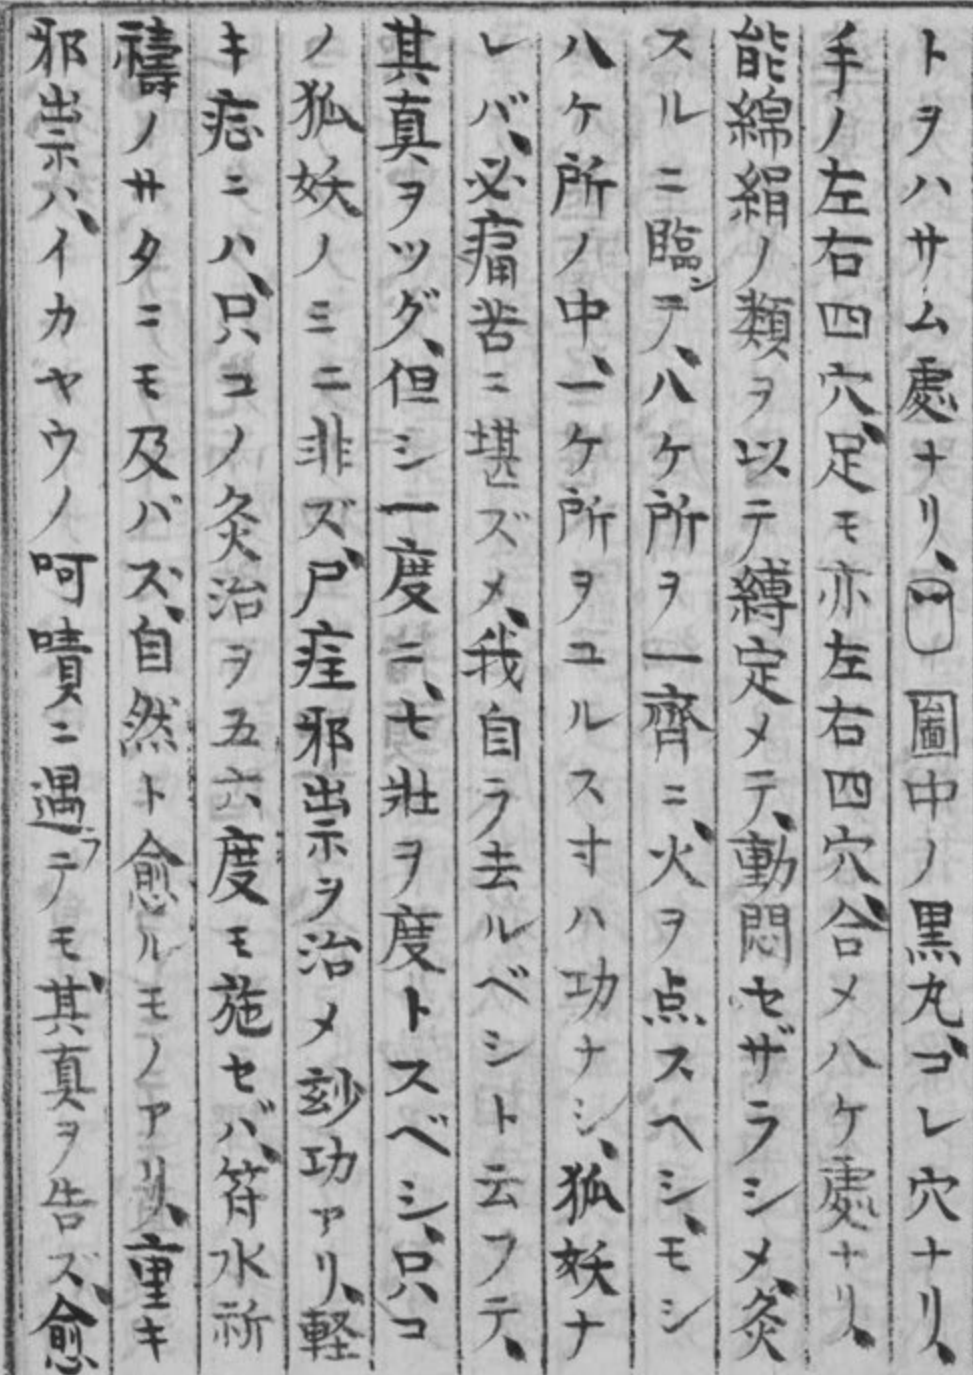 トヲハサム處ナリ、圖中ノ黒丸コレ穴ナリ、
手ノ左右四穴、足モ亦左右四穴、合メ八ケ處ナリ、
能綿絹ノ類ヲ以テ縛定メテ、動悶セザラシメ、灸
スルニ臨シテ、八ケ所ヲ一齊ニ、火ヲ点スヘシ、モシ
八ケ所ノ中、一ケ所ヲユルス寸ハ功ナシ、狐妖ナ
レバ、必痛苦ニ堪ズメ、我自ラ去ルベシト云フテ、
其真ヲツグ、但シ一度ニ、七壮ヲ度トスベシ、只コ
ノ狐妖ノミニ非ズ、尸疰邪祟ヲ治メ玅功アリ、軽
キ症ニハ、只コノ灸治ヲ五六度モ施セバ、符水祈
禱ノサタニモ及バズ、自然ト愈ルモノアリ、重キ
邪祟ハ、イカヤウノ呵嘖ニ遇フテモ、其真ヲ告ズ、愈